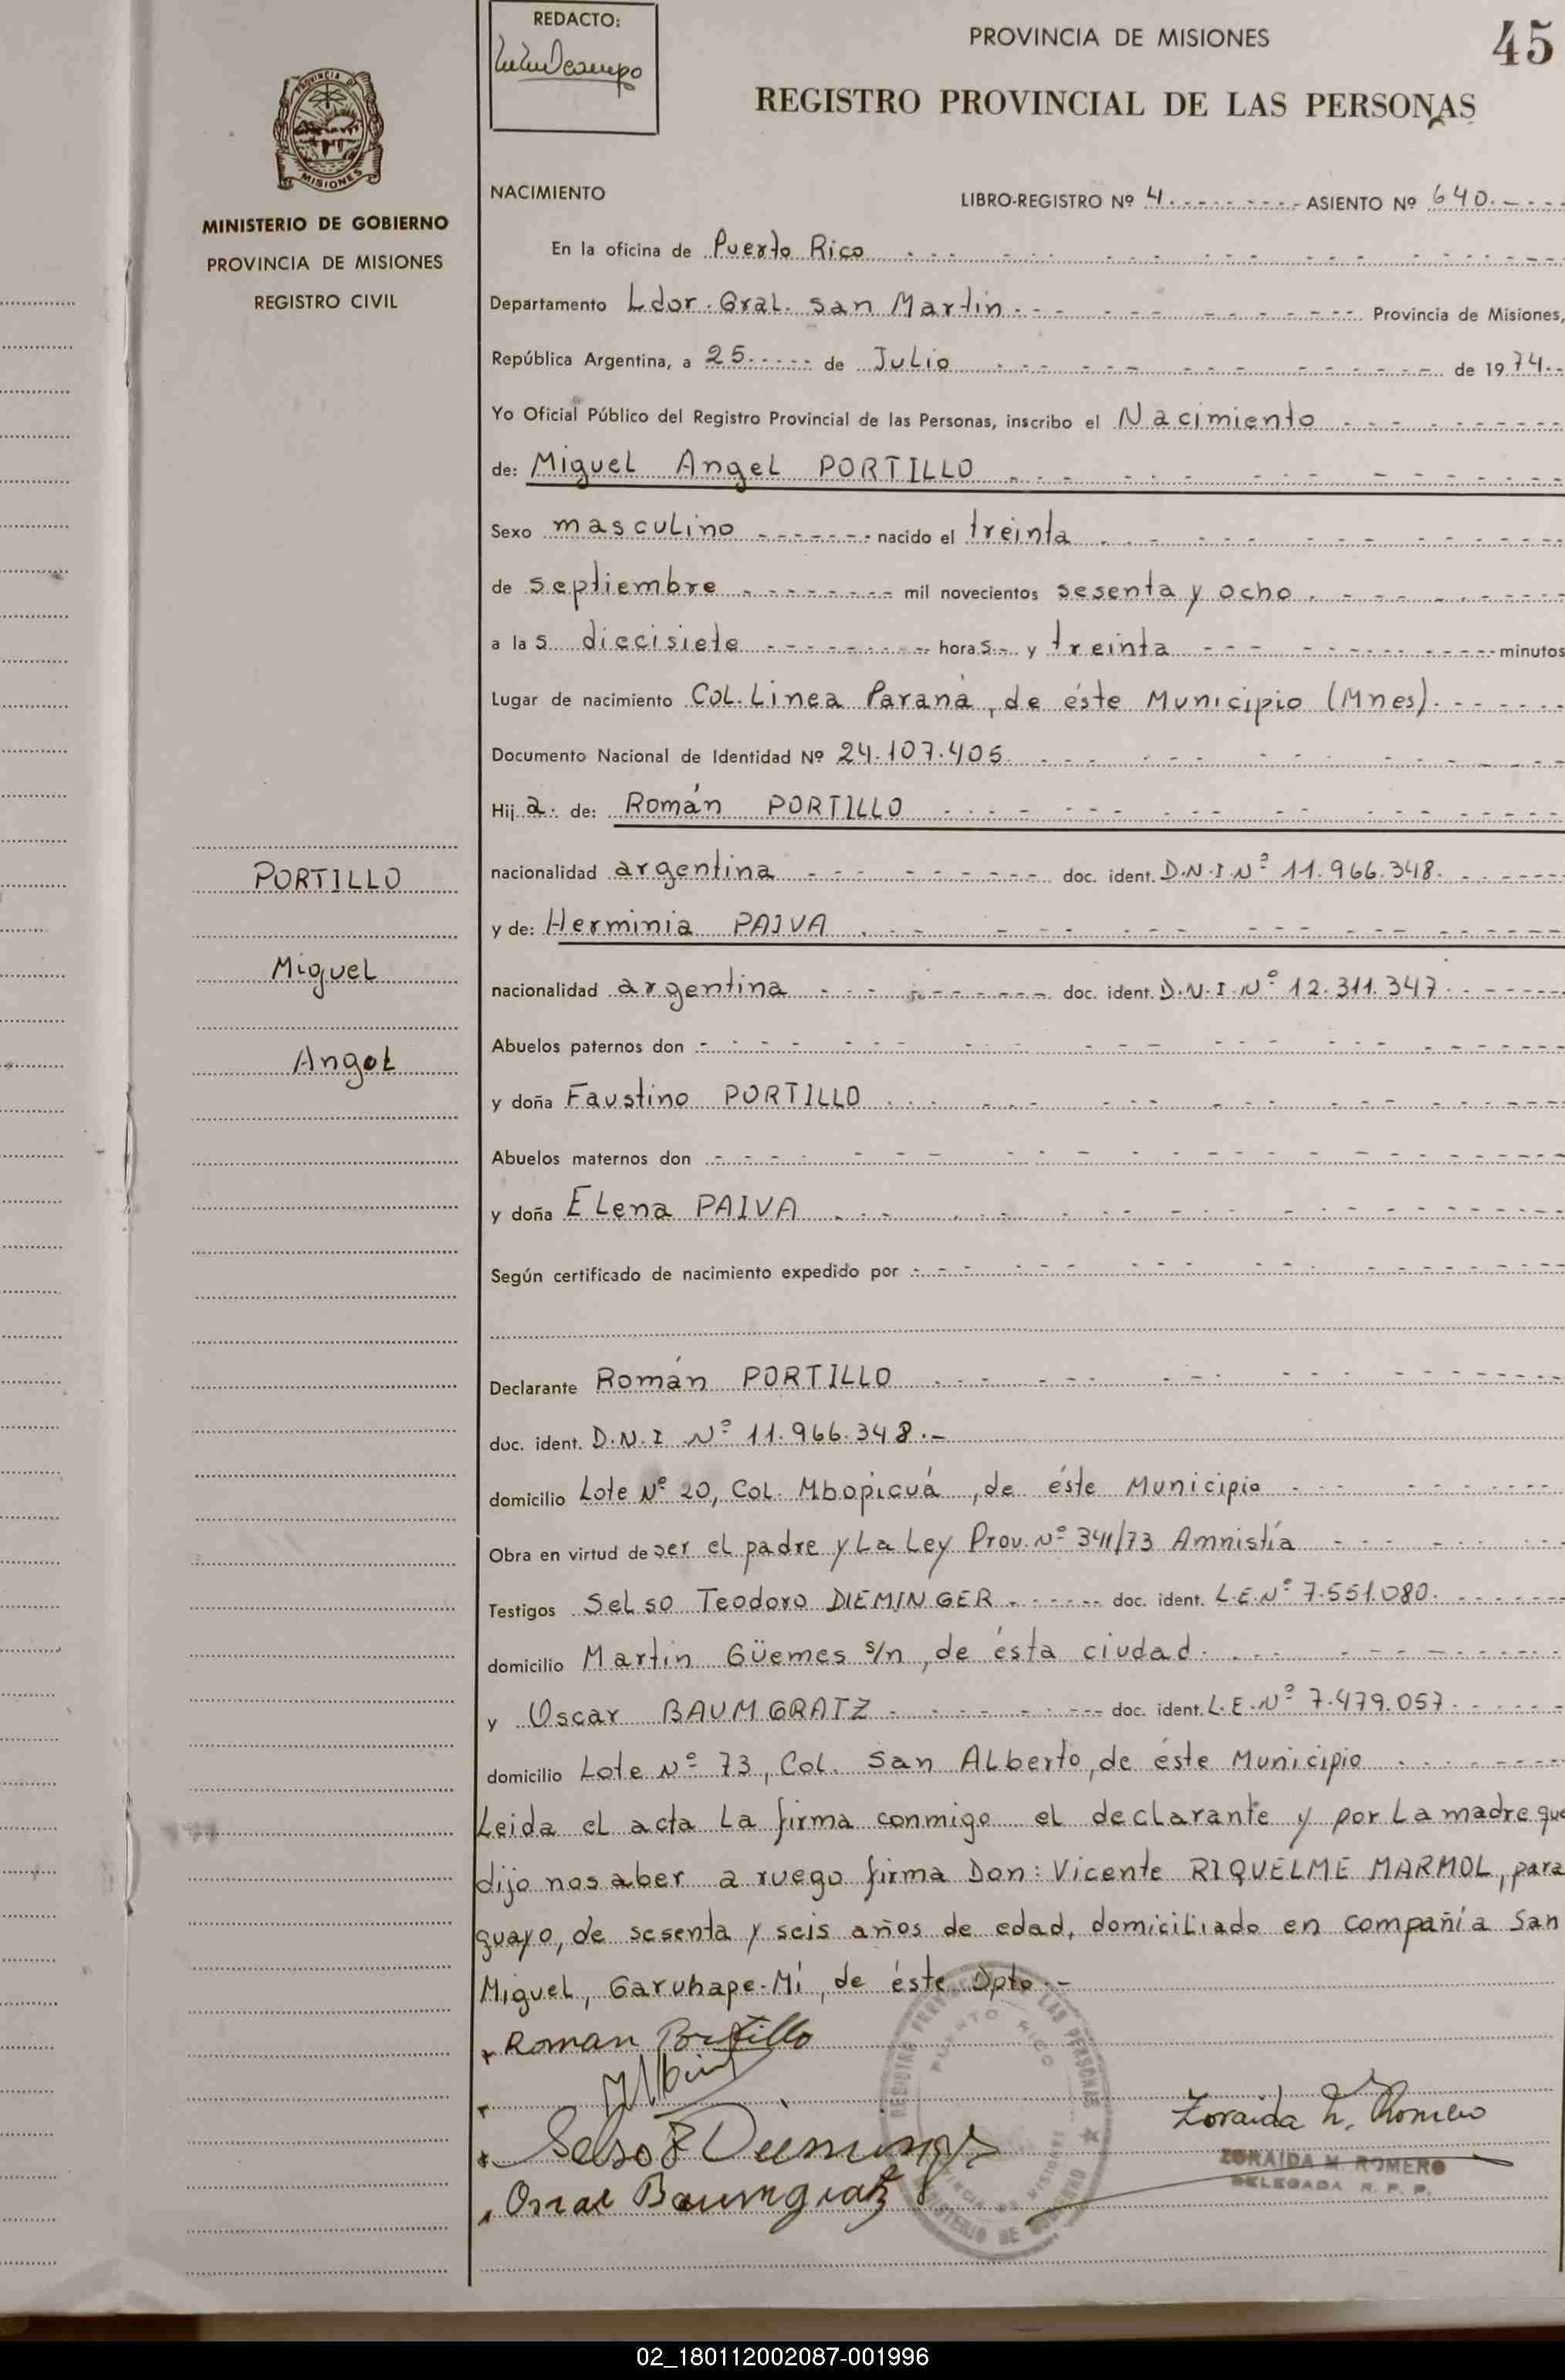 REDACTO:
PROVINCIA DE MISIONES
45
REGISTRO PROVINCIAL DE LAS PERSONAS
MISIONES
MINISTERIO DE GOBIERNO
PROVINCIA DE MISIONES
REGISTRO CIVIL
NACIMIENTO LIBRO-REGISTRO Nº 4 ASIENTO Nº 640
En la oficina de Puerto Rico
Departamento Ldor. Gral. San Martin Provincia de Misiones,
República Argentina, a 25 de Julio de 1974
Yo Oficial Público del Registro Provincial de las Personas, inscribo el Nacimiento
de: Miguel Angel PORTILLO
Sexo masculino nacido el treinta
de septiembre mil novecientos sesenta y ocho
a las diecisiete horas y treinta minutos
Lugar de nacimiento Col. Linea Paraná, de éste Municipio (Mnes).
Documento Nacional de Identidad Nº 24.107.405
Hij a de: Román PORTILLO
PORTILLO
nacionalidad argentina doc. ident. D.N.I Nº 11.966.348.
y de: Herminia PAIVA
Miguel
nacionalidad argentina doc. ident. D.N.I. Nº 12.311.347
Abuelos paternos don
Angel
y doña Faustino PORTILLO
Abuelos maternos don
y doña Elena PAIVA
Según certificado de nacimiento expedido por
Declarante Román PORTILLO
doc. ident. D.N.I Nº 11.966.348.-
domicilio Lote Nº 20, Col. Mbopicuá, de éste Municipio
Obra en virtud de ser el padre y La Ley Prov. Nº 341/73 Amnistía
Testigos Selso Teodoro DIEMINGER doc. ident. L.E. Nº 7.551.080.
domicilio Martin Güemes s/n, de ésta ciudad.
y Oscar BAUMGRATZ doc. ident. L.E. Nº 7.479.057
domicilio Lote Nº 73, Col. San Alberto, de éste Municipio
Leida el acta La firma conmigo el declarante y por La madre que
dijo nos aber a ruego firma Don: Vicente RIQUELME MARMOL, para
guayo, de sesenta y seis años de edad, domiciliado en Compañía San
Miguel, Garuhape-Mí, de éste Dpto.-
Roman Portillo
Zoraida N. Romero
Selso T Dieminger
ZORAIDA N. ROMERO
DELEGADA R. P. P.
Oscar Baumgratz
02_180112002087-001996